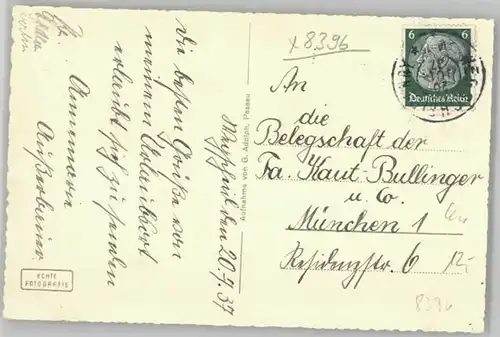 x 8396
6 6
Deutsches Reich
An
die
Belegschaft der
Fa. Kaut-Bullinger
u. Co.
München 1
Residenzstr. 6
12,-
8396
Aufnahme von G. Adolph, Passau
den 20.7.37
Die besten Grüße von
meinem Urlaubsort
erlaubt sich zu senden
Annemarie
ECHTE
FOTOGRAFIE